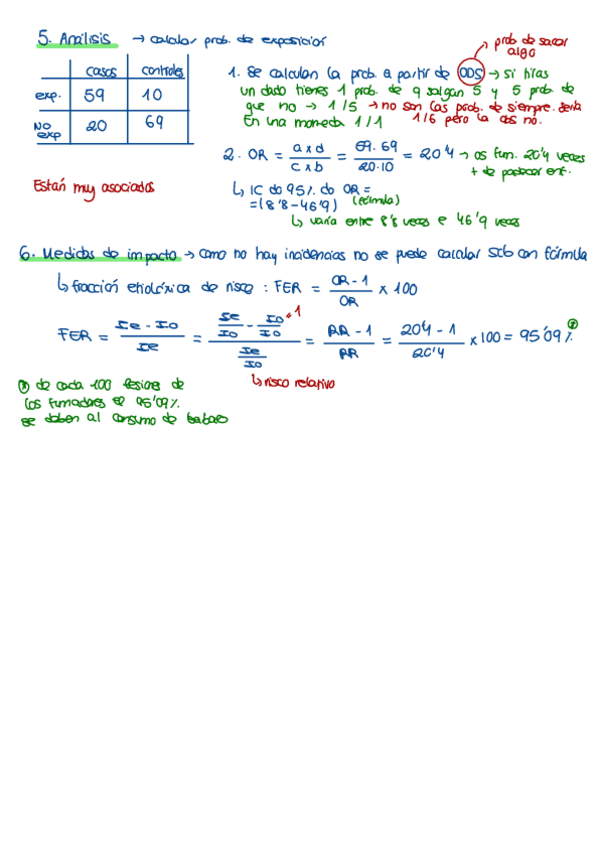 5. Análisis → calcular prob. de exposición
prob. de sacar algo
casos controles
exp. 59 10
No exp 20 69
Están muy asociados
1. Se calculan la prob. a partir de ODS → si tiras
un dado tienes 1 prob. de q salgan 5 y 5 prob de
que no → 1/5 → no son las prob. de siempre. Sería
En una moneda 1/1 1/6 pero la ods no.
2. OR = a x d / c x b = 59. 69 / 20.10 = 20'4 → os fum. 20'4 veces
+ de padecer enf.
↳ IC do 95%. do OR =
= (8'8-46'9) (fórmula)
↳ varía entre 8'8 veces e 46'9 veces
6. Medidas de impacto → como no hay incidencias no se puede calcular scb con fórmula
↳ fracción etiolóxica de risco : FER = OR - 1 / OR x 100
FER = Ie - Io / Ie = Ie / Io - Io / Io = 1 / Ie / Io = RR - 1 / RR = 20'4 - 1 / 20'4 x 100 = 95'09 %
↳ risco relativo
de cada 100 lesions de
los fumadores el 95'09%.
se deben al consumo de tabaco